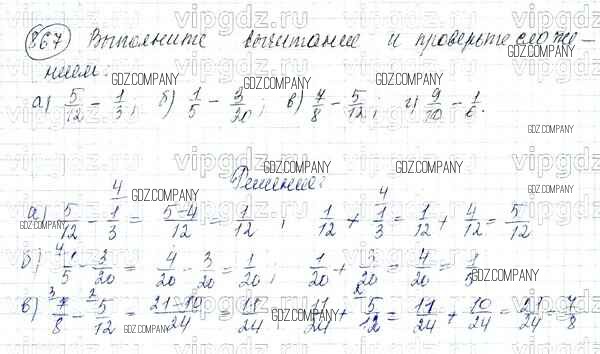 867 Выполните вычитание и проверьте сложе-
нием:
а) 5/12 - 1/3; б) 1/5 - 3/20; в) 7/8 - 5/12; г) 9/10 - 1/6.
Решение:
а) 5/12 - 1/3 (4 = (5-4)/12 = 1/12; 1/12 + 1/3 (4 = 1/12 + 4/12 = 5/12
б) 4) 1/5 - 3/20 = 4/20 - 3/20 = 1/20; 1/20 + 3/20 = 4/20 = 1/5
в) 3) 7/8 - 2) 5/12 = (21-10)/24 = 11/24; 11/24 + 2) 5/12 = 11/24 + 10/24 = 21/24 = 7/8
vipgdz.ru
GDZ.COMPANY